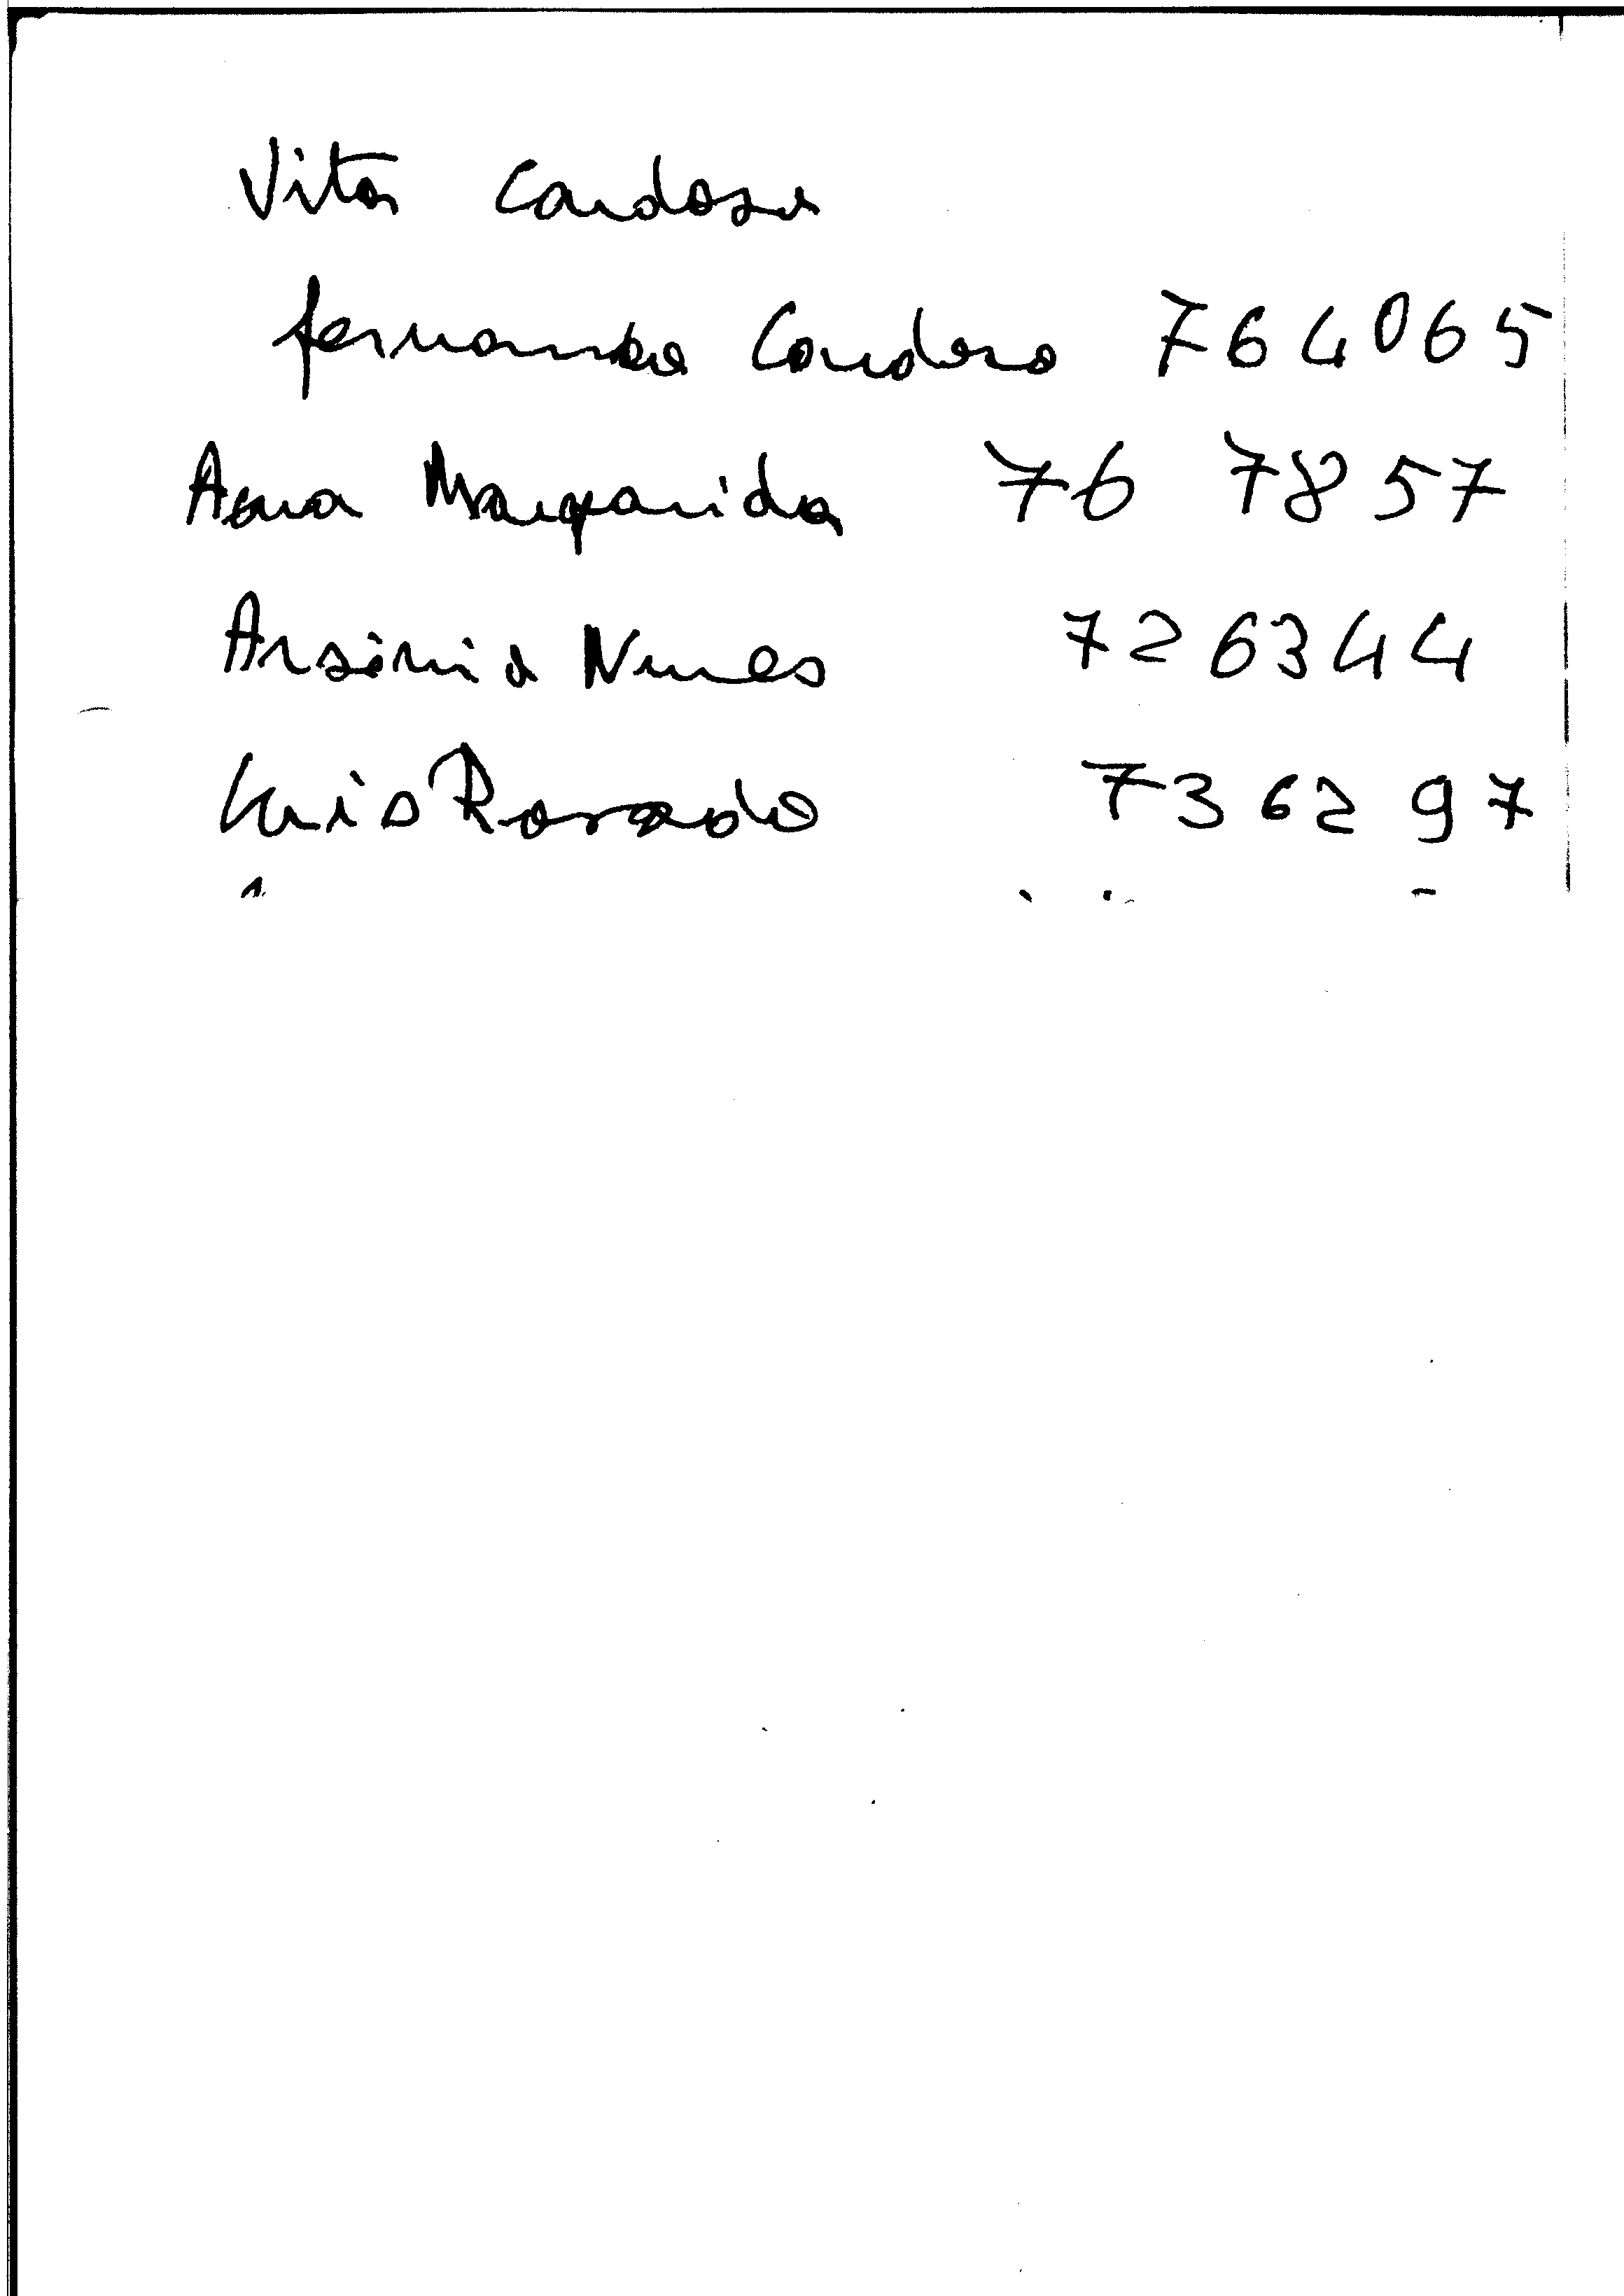 Vitor Cardoso
Fernanda Cardoso 764065
Ana Margarida 76 7857
Arsénio Nunes 726344
Luis Rosado 736297